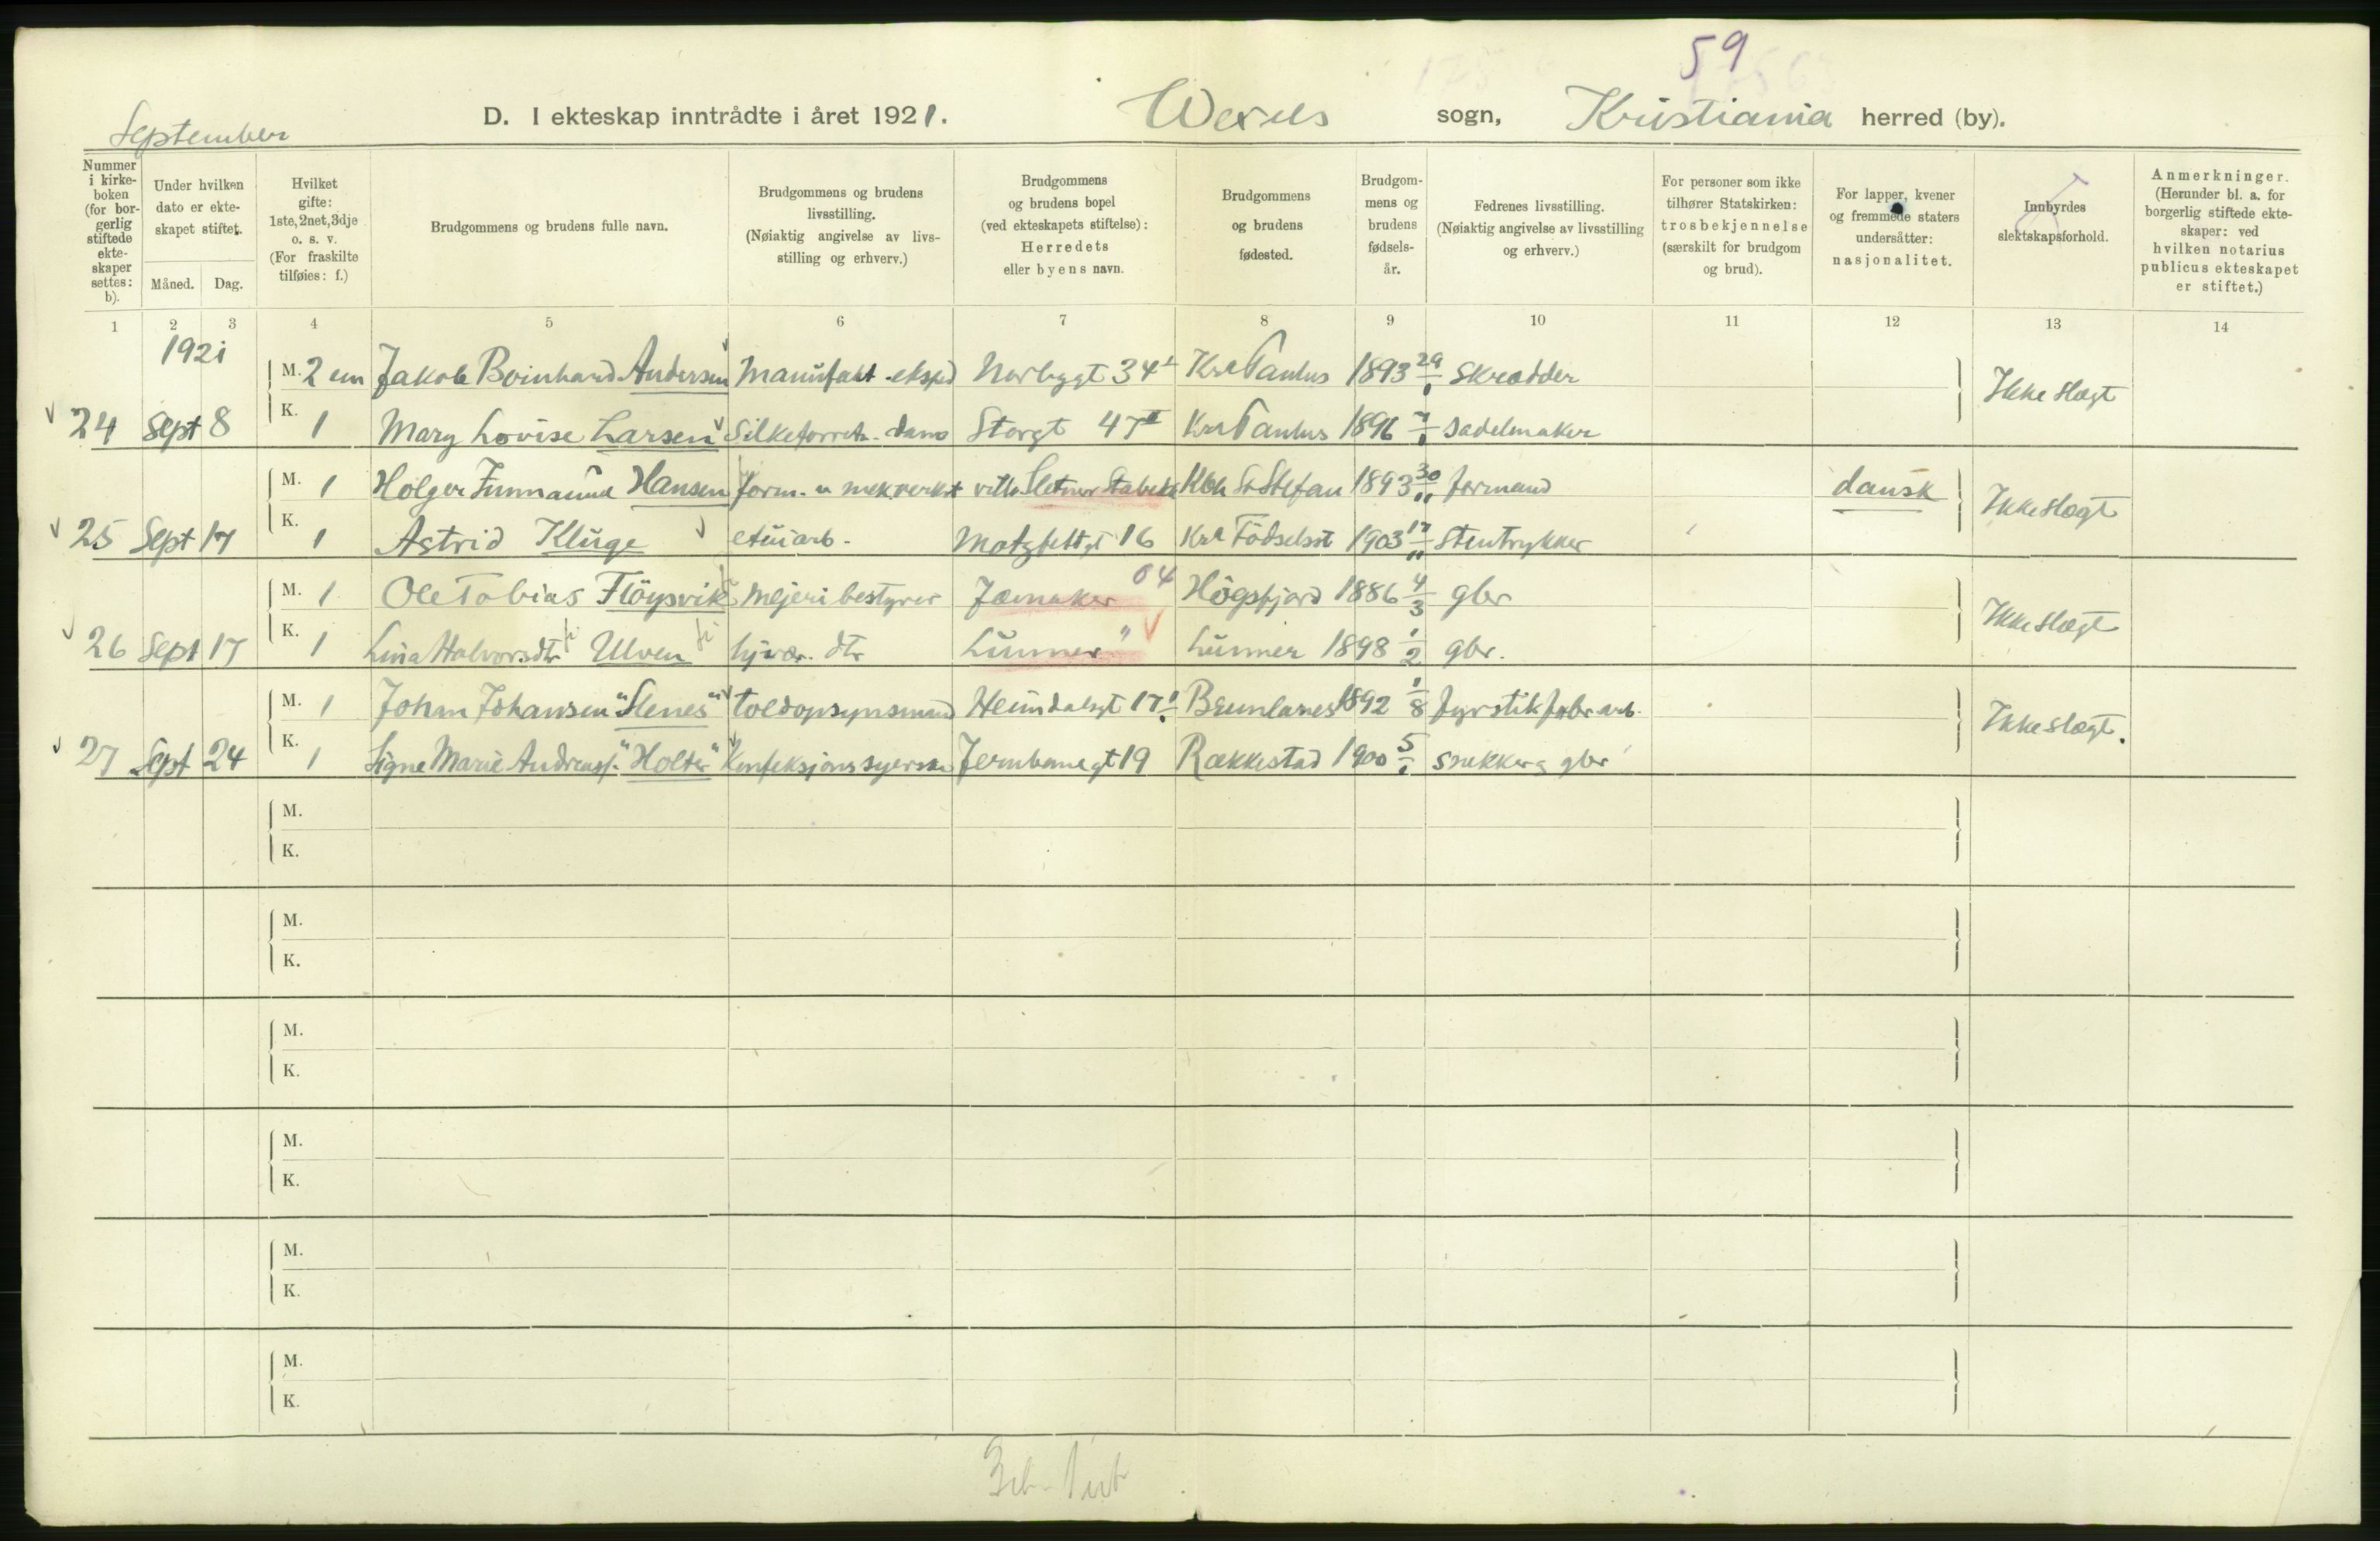 59
September
D. I ekteskap inntrådte i året 1921. Wexels sogn, Kristiania herred (by).
Nummer i kirke-boken (for bor-gerlig stiftede ekte-skaper settes: b).
Under hvilken dato er ekte-skapet stiftet.
Måned. Dag.
Hvilket gifte: 1ste, 2net, 3dje o. s. v. (For fraskilte tilføies: f.)
Brudgommens og brudens fulle navn.
Brudgommens og brudens livsstilling. (Nøiaktig angivelse av livs-stilling og erhverv.)
Brudgommens og brudens bopel (ved ekteskapets stiftelse): Herredets eller byens navn.
Brudgommens og brudens fødested.
Brudgom-mens og brudens fødsels-år.
Fedrenes livsstilling. (Nøiaktig angivelse av livsstilling og erhverv.)
For personer som ikke tilhører Statskirken: trosbekjennelse (særskilt for brudgom og brud).
For lapper, kvener og fremmede staters undersåtter: nasjonalitet.
Innbyrdes slektskapsforhold.
Anmerkninger. (Herunder bl. a. for borgerlig stiftede ekte-skaper: ved hvilken notarius publicus ekteskapet er stiftet.)
1 2 3 4 5 6 7 8 9 10 11 12 13 14
1921
M. 2 em Jakob Bernhard Andersen Manufakt. eksped Norbygt 34 Kra Paulus 1893 29/1 Skrædder
Ikke slægt
24 Sept 8 K. 1 Mary Lovise Larsen Silkeforretn. dame Storgt 47 II Kra Paulus 1896 sadelmaker
M. 1 Holger Hansen form. v mek. verkst villa Sletner Stabekk Kbh St Stefan 1893 30/11 formand dansk
Ikke slægt
25 Sept 17 K. 1 Astrid Kluge etuiarb. Motzfeldtgt 16 Kra Fødselsst 1903 17/11 Stentrykker
04
M. 1 Ole Tobias Flöysvik Mejeribestyrer Jævnaker Högsfjord 1886 4/3 gbr
Ikke slægt
26 Sept 17 K. 1 Lina Halvorsdtr Ulven hjvær. dtr Lunner " Lunner 1898 1/2 gbr.
M. 1 Johan Johansen "Slenes" toldopsynsmand Heimdalsgt 17 Brunlanes 1892 1/8 fyrstikfabr arb.
Ikke slægt.
27 Sept 24 K. 1 Signe Marie Andreasf. "Holter" Konfeksjonssyerske Jernbanegt 19 Rakkestad 1900 5/1 snekker og gbr
M.
K.
M.
K.
M.
K.
M.
K.
M.
K.
M.
K.